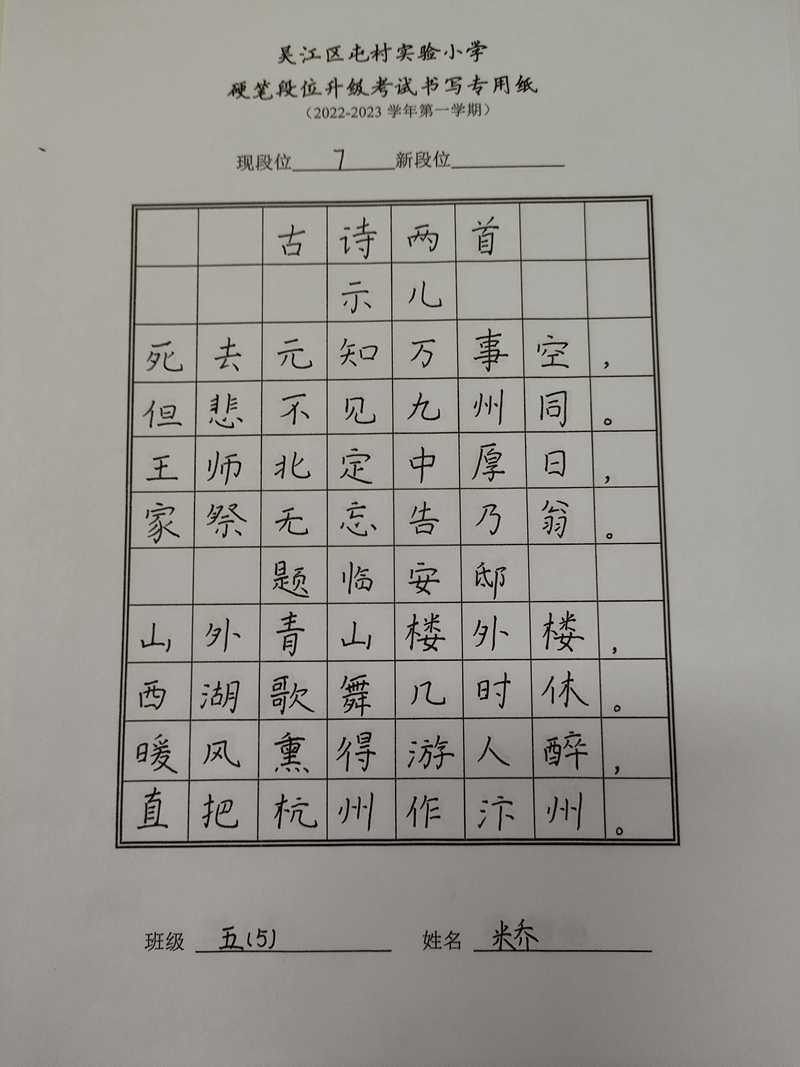 吴江区屯村实验小学
硬笔段位升级考试书写专用纸
（2022-2023 学年第一学期）
现段位 7 新段位
古诗两首
示儿
死去元知万事空，
但悲不见九州同。
王师北定中厚日，
家祭无忘告乃翁。
题临安邸
山外青山楼外楼，
西湖歌舞几时休。
暖风熏得游人醉，
直把杭州作汴州。
班级 五(5) 姓名